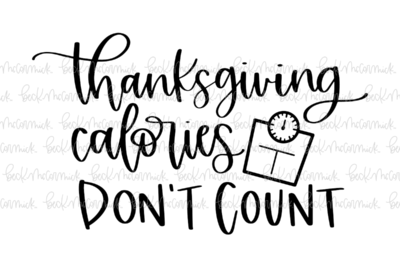 thanksgiving
calories
DON'T COUNT